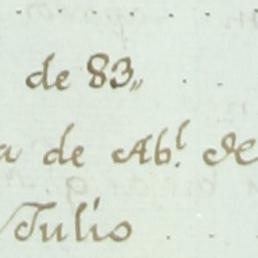 de 83,,
a de Ab.l de
Julio